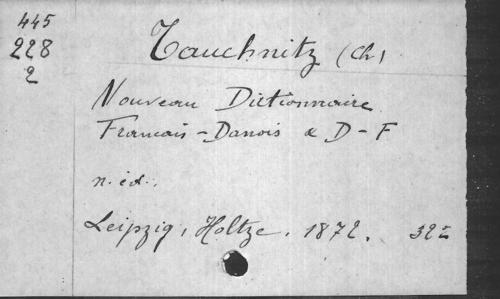 445
228
2
Tauchnitz (Ch)
Nouveau Dictionnaire
Francais - Danois & D - F
n. éd.,
Leipzig, Holtze. 1872. 32=